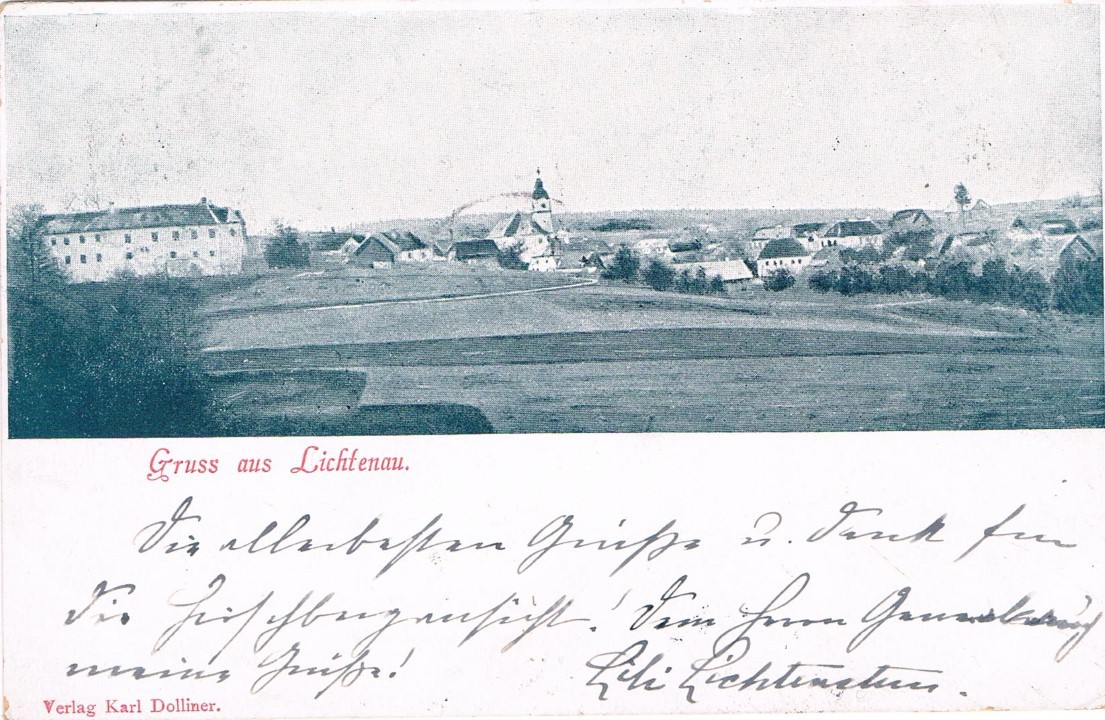 Gruss aus Lichtenau.
Die allerbesten Grüße u. Dank für
die Hirschbergansicht! Dem Herrn
meine Grüße! Lili Lichtenstern.
Verlag Karl Dolliner.